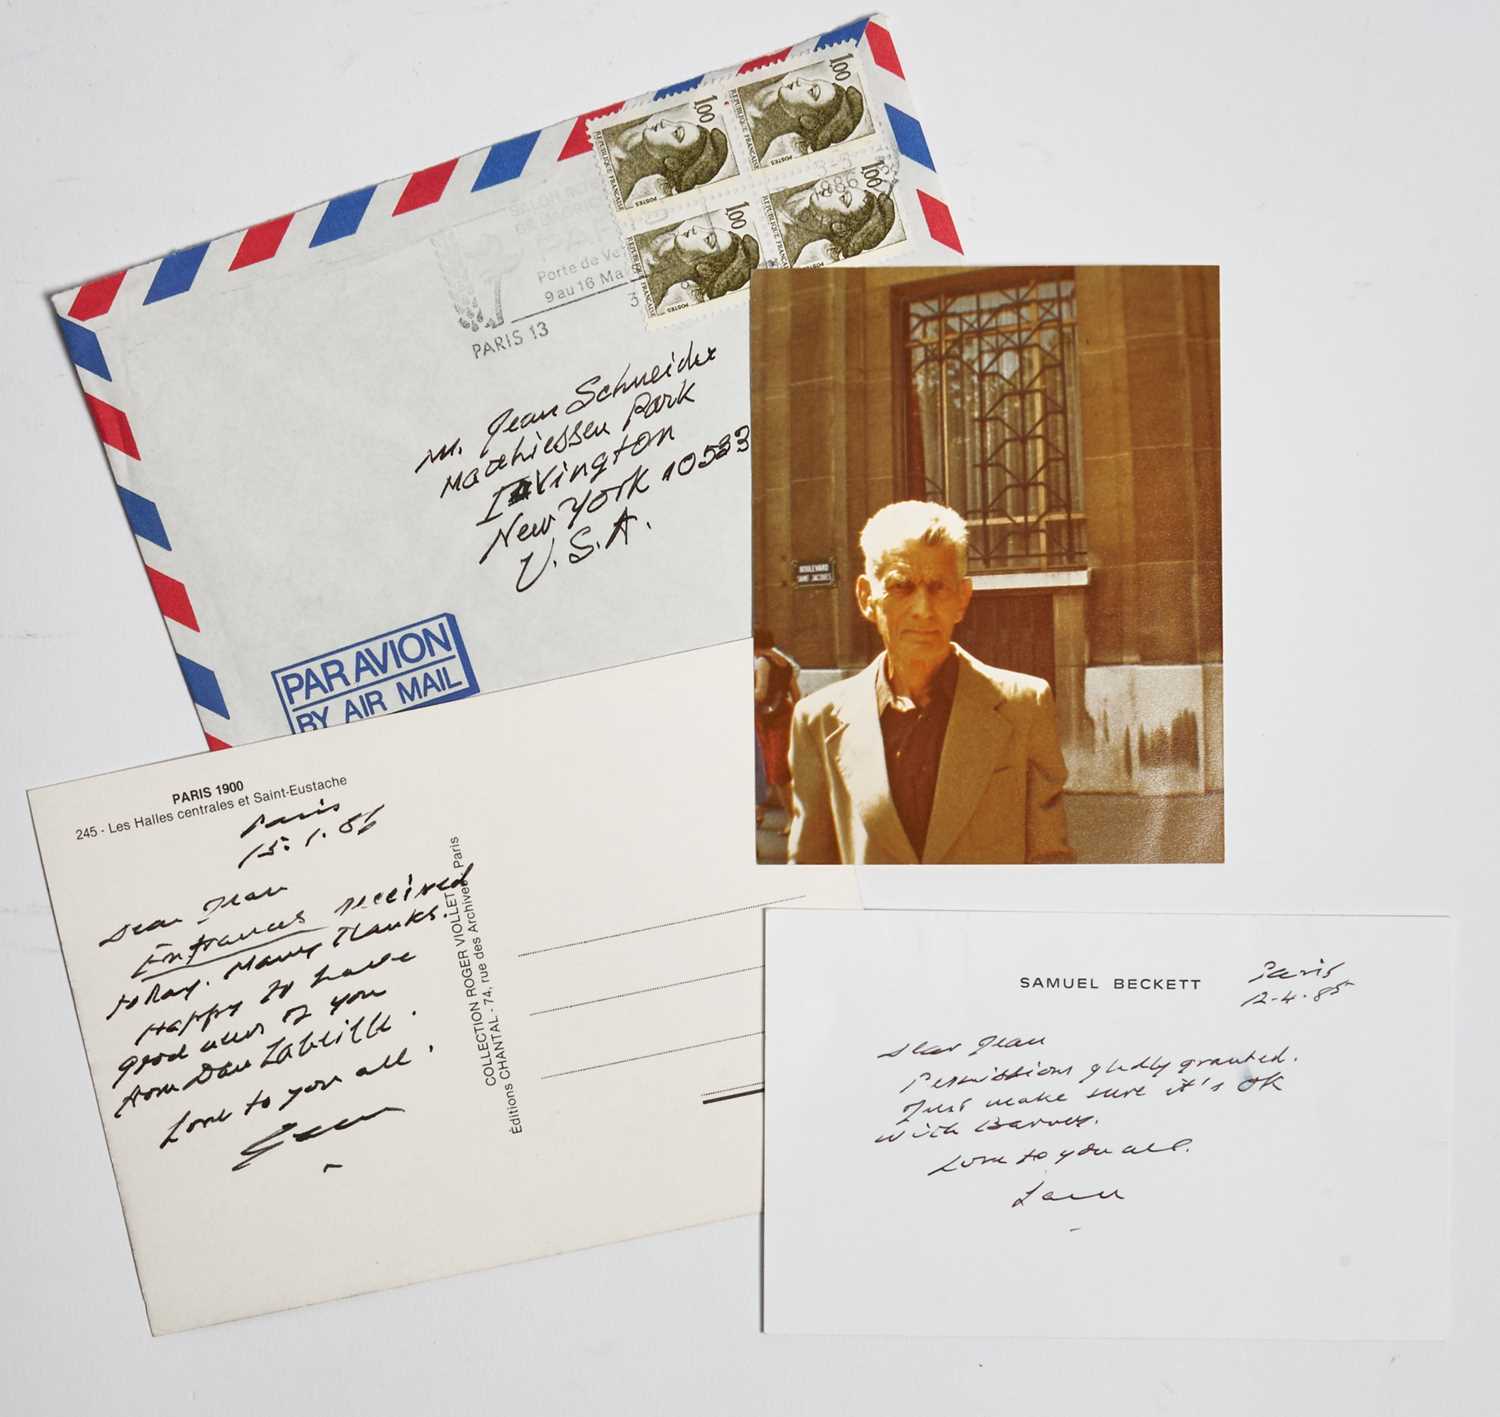 1,00
REPUBLIQUE FRANÇAISE
POSTES
1,00
REPUBLIQUE FRANÇAISE
POSTES
1,00
REPUBLIQUE FRANÇAISE
POSTES
1,00
REPUBLIQUE FRANÇAISE
3-3
1986
PARIS 13
Porte de Ve
9 au 16 Ma
M. Jean Schneider
Matthiessen Park
Irvington
New York 10533
U.S.A.
PAR AVION
BY AIR MAIL
BOULEVARD
SAINT JACQUES
PARIS 1900
245 - Les Halles centrales et Saint-Eustache
Paris
15.1.86
Dear Jean
Entrances received
today. Many thanks.
Happy to have
good news of you
from Dan Labeille.
Love to you all.
Sam
COLLECTION ROGER VIOLLET Paris
Éditions CHANTAL - 74, rue des Archives
SAMUEL BECKETT
Paris
12.4.85
Dear Jean
Permissions gladly granted.
Just make sure it's OK
with Barney.
Love to you all.
Sam